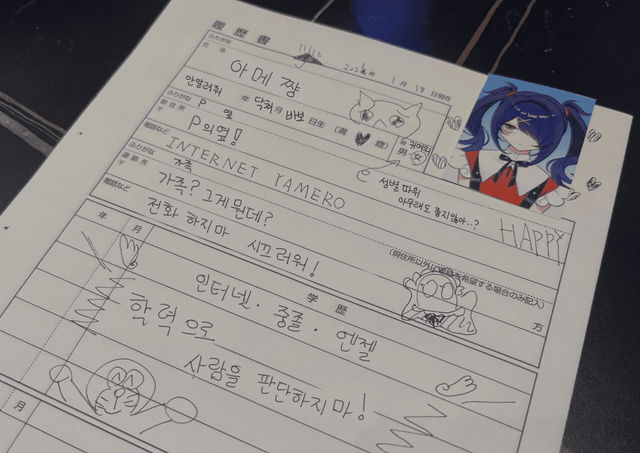 履歴書
2024年 1月 18日現在
ふりがな
氏名
아메 쨩
안알려줘 年 닥쳐 月 바보 日生 (満 歳) 男・女 귀여워
ふりがな P 옆
現住所 P의 옆!
〒
성별 따위
아무래도 좋지않아..?
電話など INTERNET YAMERO
HAPPY
ふりがな 가족
連絡先 가족? 그게 뭔데?
〒
(現住所以外に連絡を希望する場合のみ記入)
電話など 전화 하지마 시끄러워!
方
年 月
学 歴
인터넷・중졸・엔젤
학력으로
사람을 판단하지 마!
月